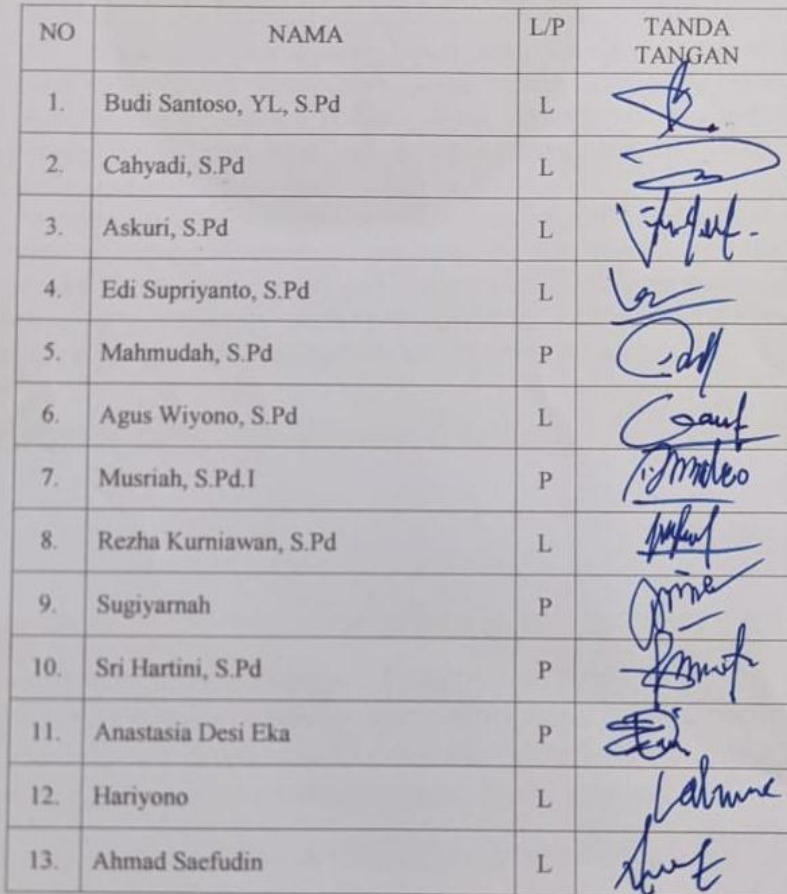 NO NAMA L/P TANDA TANGAN
1. Budi Santoso, YL, S.Pd L
2. Cahyadi, S.Pd L
3. Askuri, S.Pd L
4. Edi Supriyanto, S.Pd L
5. Mahmudah, S.Pd P
6. Agus Wiyono, S.Pd L
7. Musriah, S.Pd.I P
8. Rezha Kurniawan, S.Pd L
9. Sugiyarnah P
10. Sri Hartini, S.Pd P
11. Anastasia Desi Eka P
12. Hariyono L
13. Ahmad Saefudin L